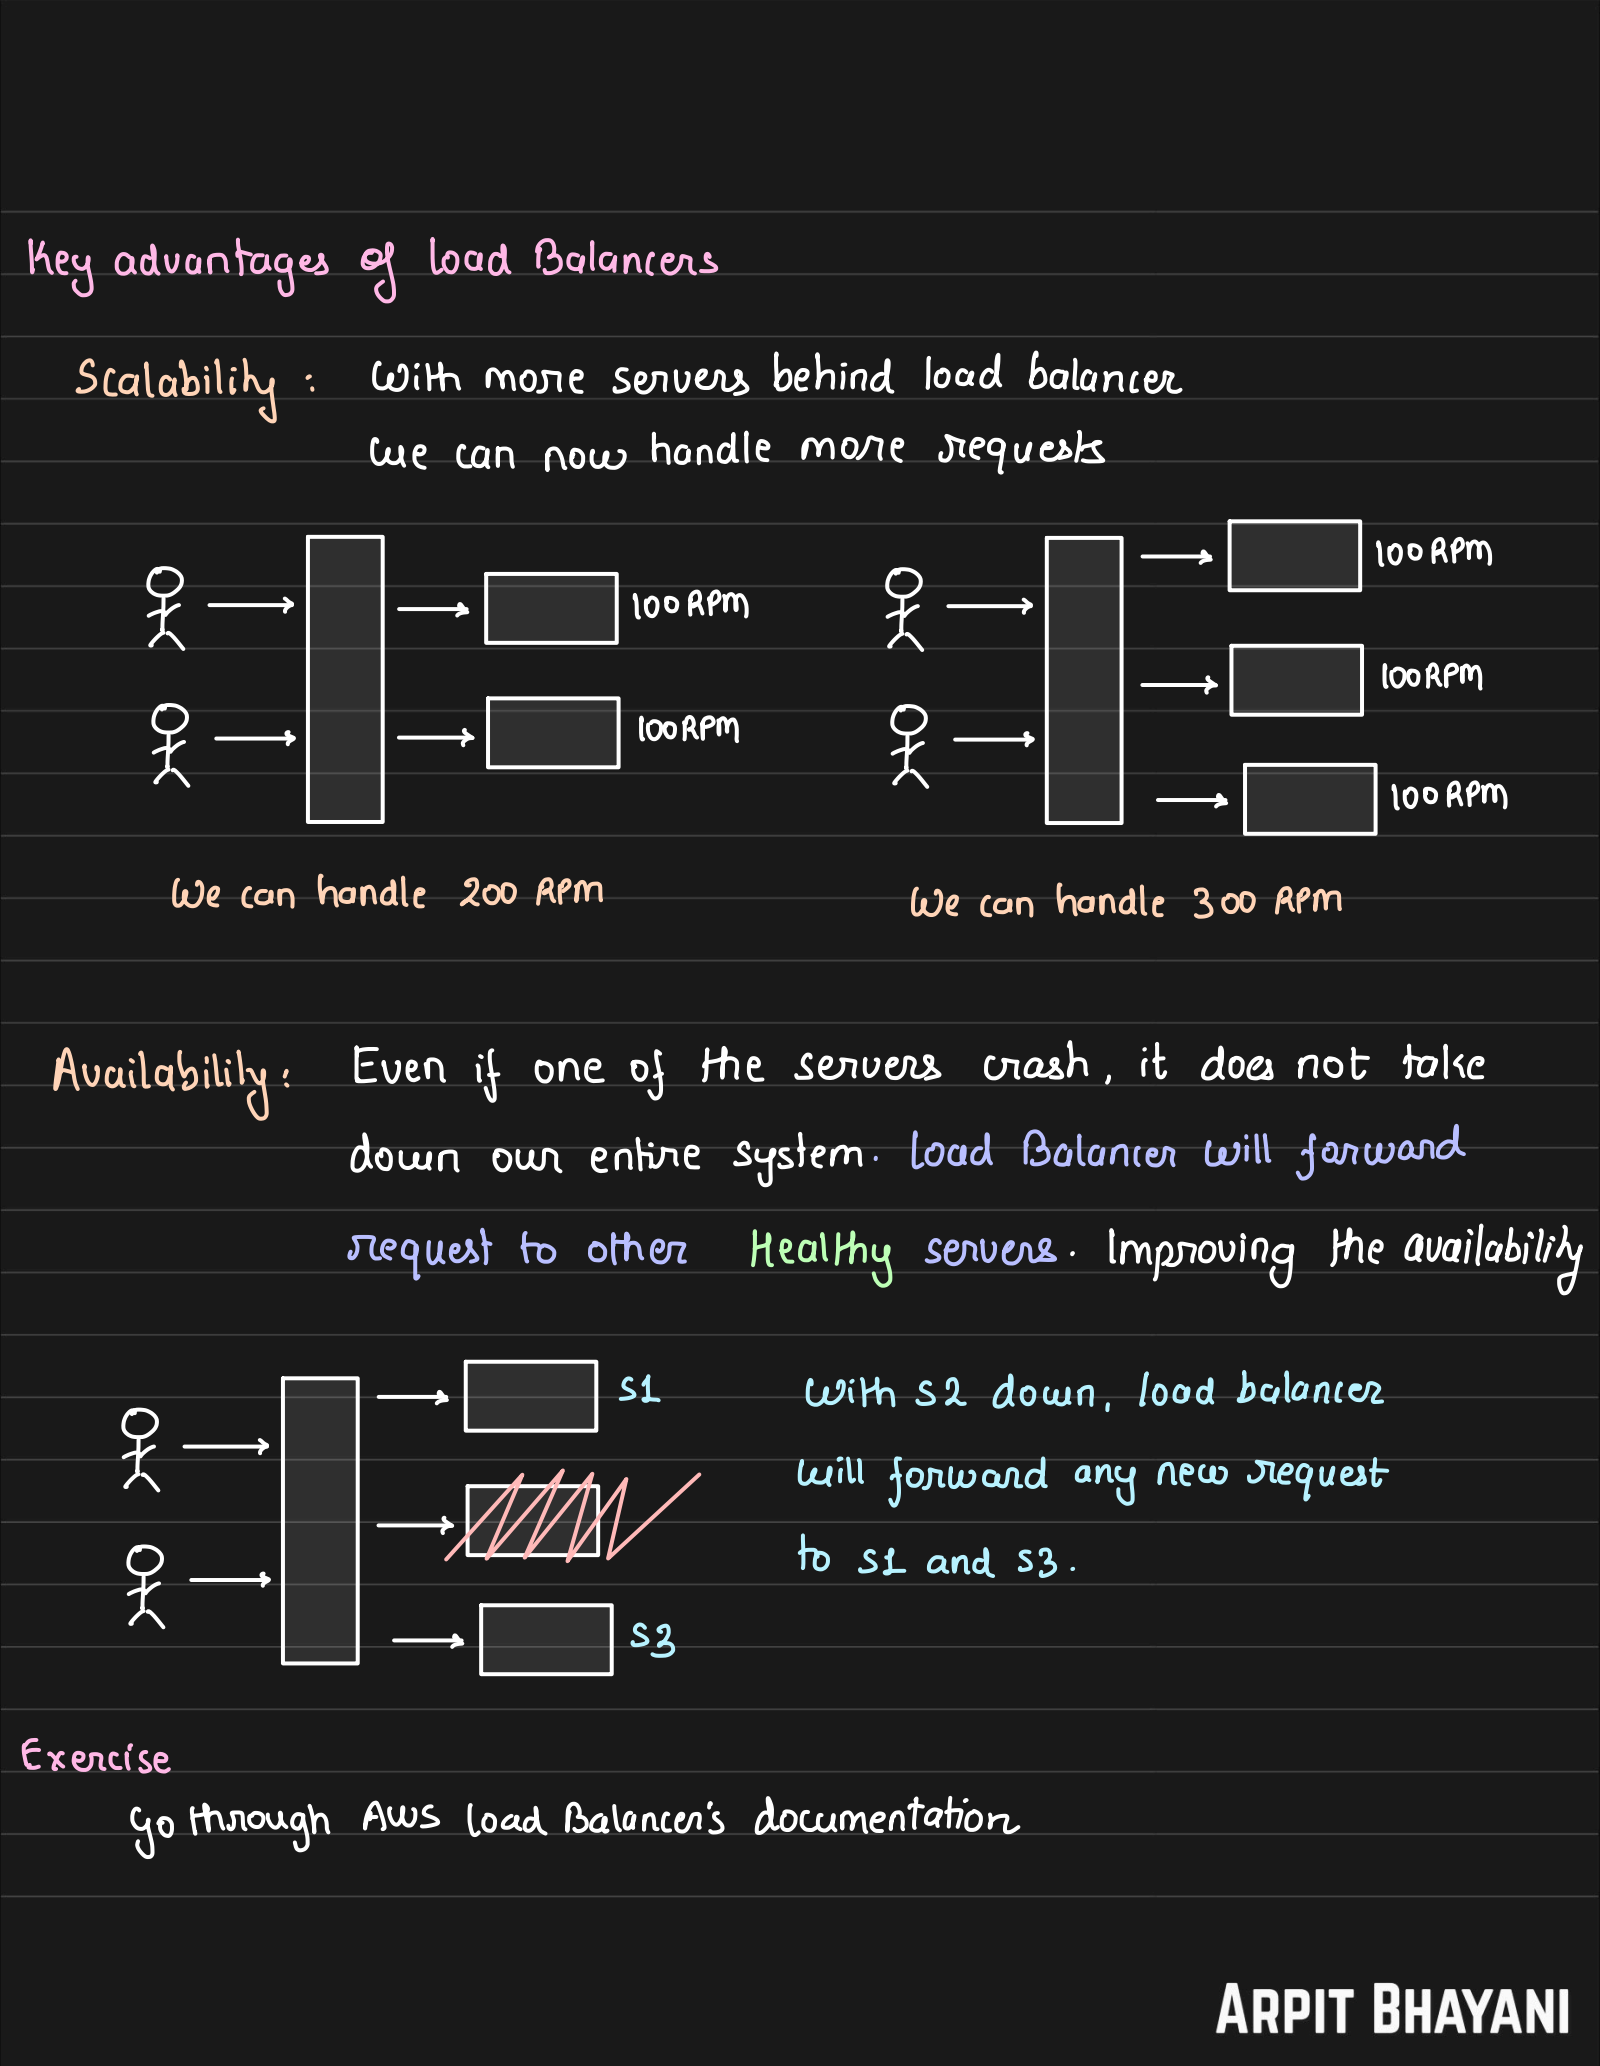 Key advantages of Load Balancers
Scalability : With more servers behind load balancer
we can now handle more requests
100 RPM
100 RPM
100 RPM
100 RPM
100 RPM
We can handle 200 RPM
We can handle 300 RPM
Availability : Even if one of the servers crash, it does not take
down our entire system. Load Balancer will forward
request to other Healthy servers. Improving the availability
S1
S3
With S2 down, load balancer
will forward any new request
to S1 and S3.
Exercise
Go through AWS Load Balancer's documentation
ARPIT BHAYANI